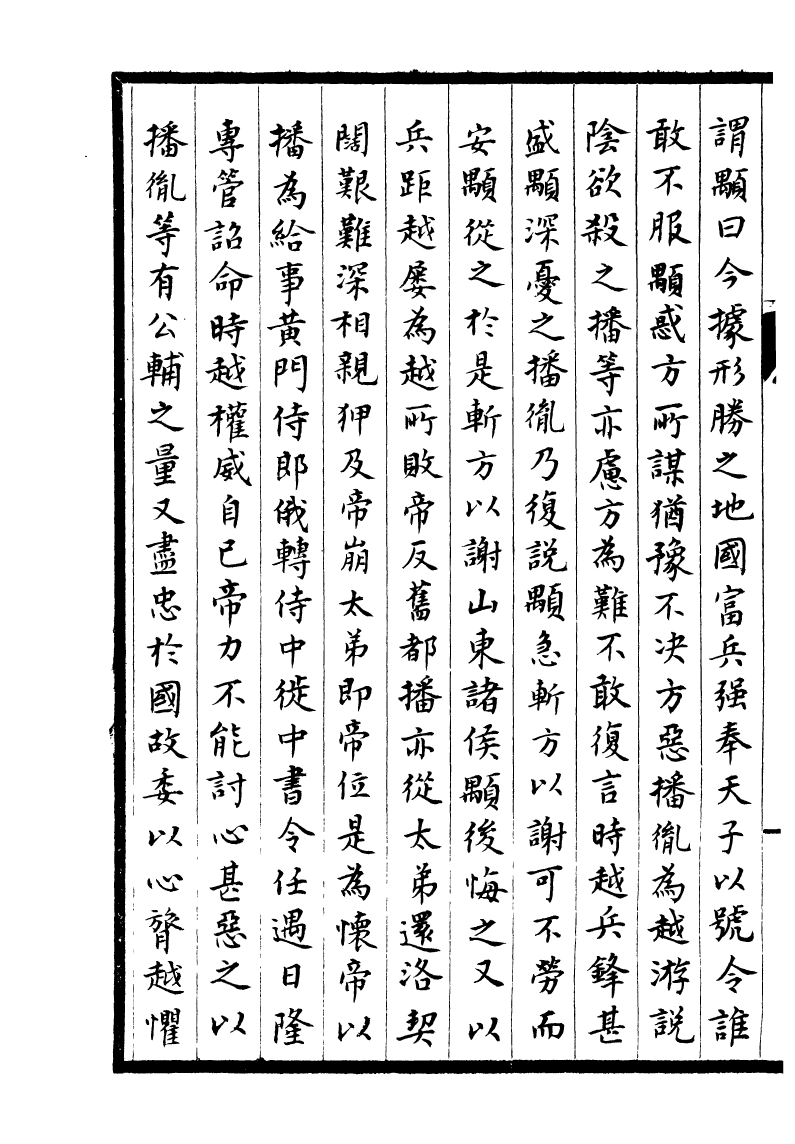 謂顒曰今據形勝之地國富兵强奉天子以號令誰
敢不服顒惑方所謀猶豫不决方惡播胤為越游説
陰欲殺之播等亦慮方為難不敢復言時越兵鋒甚
盛顒深憂之播胤乃復説顒急斬方以謝可不勞而
安顒從之於是斬方以謝山東諸侯顒後悔之又以
兵距越屡為越所敗帝反舊都播亦從太弟還洛契
闊艱難深相親狎及帝崩太弟即帝位是為懷帝以
播為給事黄門侍郎俄轉侍中徙中書令任遇日隆
專管詔命時越權威自已帝力不能討心甚惡之以
播胤等有公輔之量又盡忠於國故委以心膂越懼